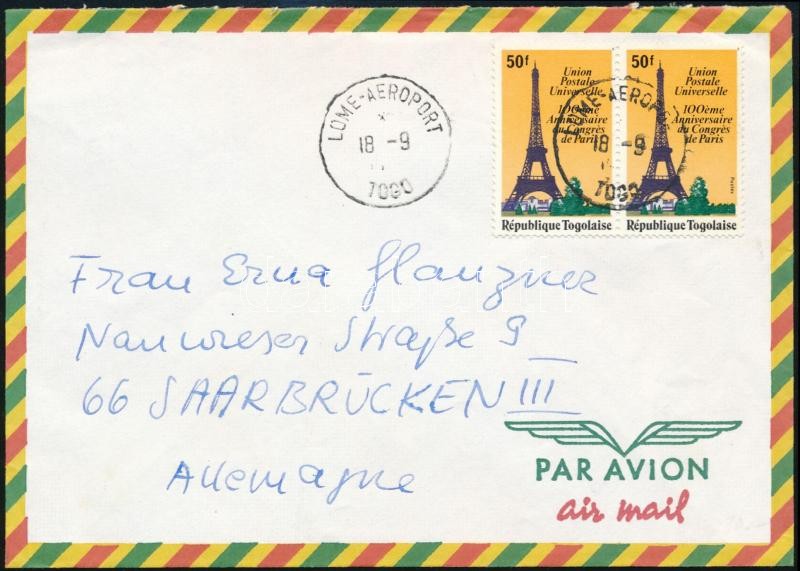 LOME-AEROPORT
18 -9
TOGO
50f
Union
Postale
Universelle
100ème
Anniversaire
du Congrès
de Paris
République Togolaise
50f
Union
Postale
Universelle
100ème
Anniversaire
du Congrès
de Paris
Postes
République Togolaise
LOME-AEROPORT
18 -9
TOGO
Frau Erna Glanzner
Nauwieser Straße 9
66 SAARBRÜCKEN III
Allemagne
PAR AVION
air mail